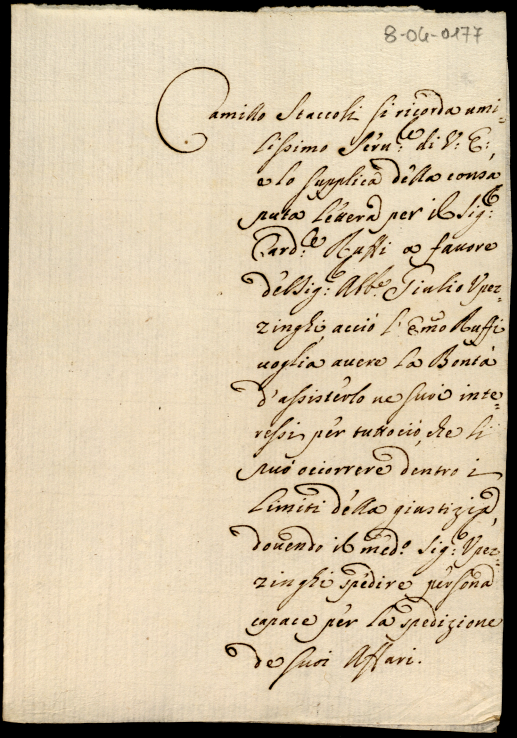 8-04-0177
Camillo Staccoli si ricorda umi-
lissimo Seru:re di V: E:,
e lo supplica della consa
puta lettera per il Sig:r
Card:le Ruffi a fauore
del Sig:r Abb:e Giulio Vper-
zinghi, acciò l'Emo Ruffi
uoglia auere la Bontà
d'assisterlo ne suoi inte-
ressi per tuttociò, che li
può occorrere dentro i
limiti della giustizia,
douendo il med:o Sig:r Vper-
zinghi spedire persona
capace per la spedizione
de suoi Affari.